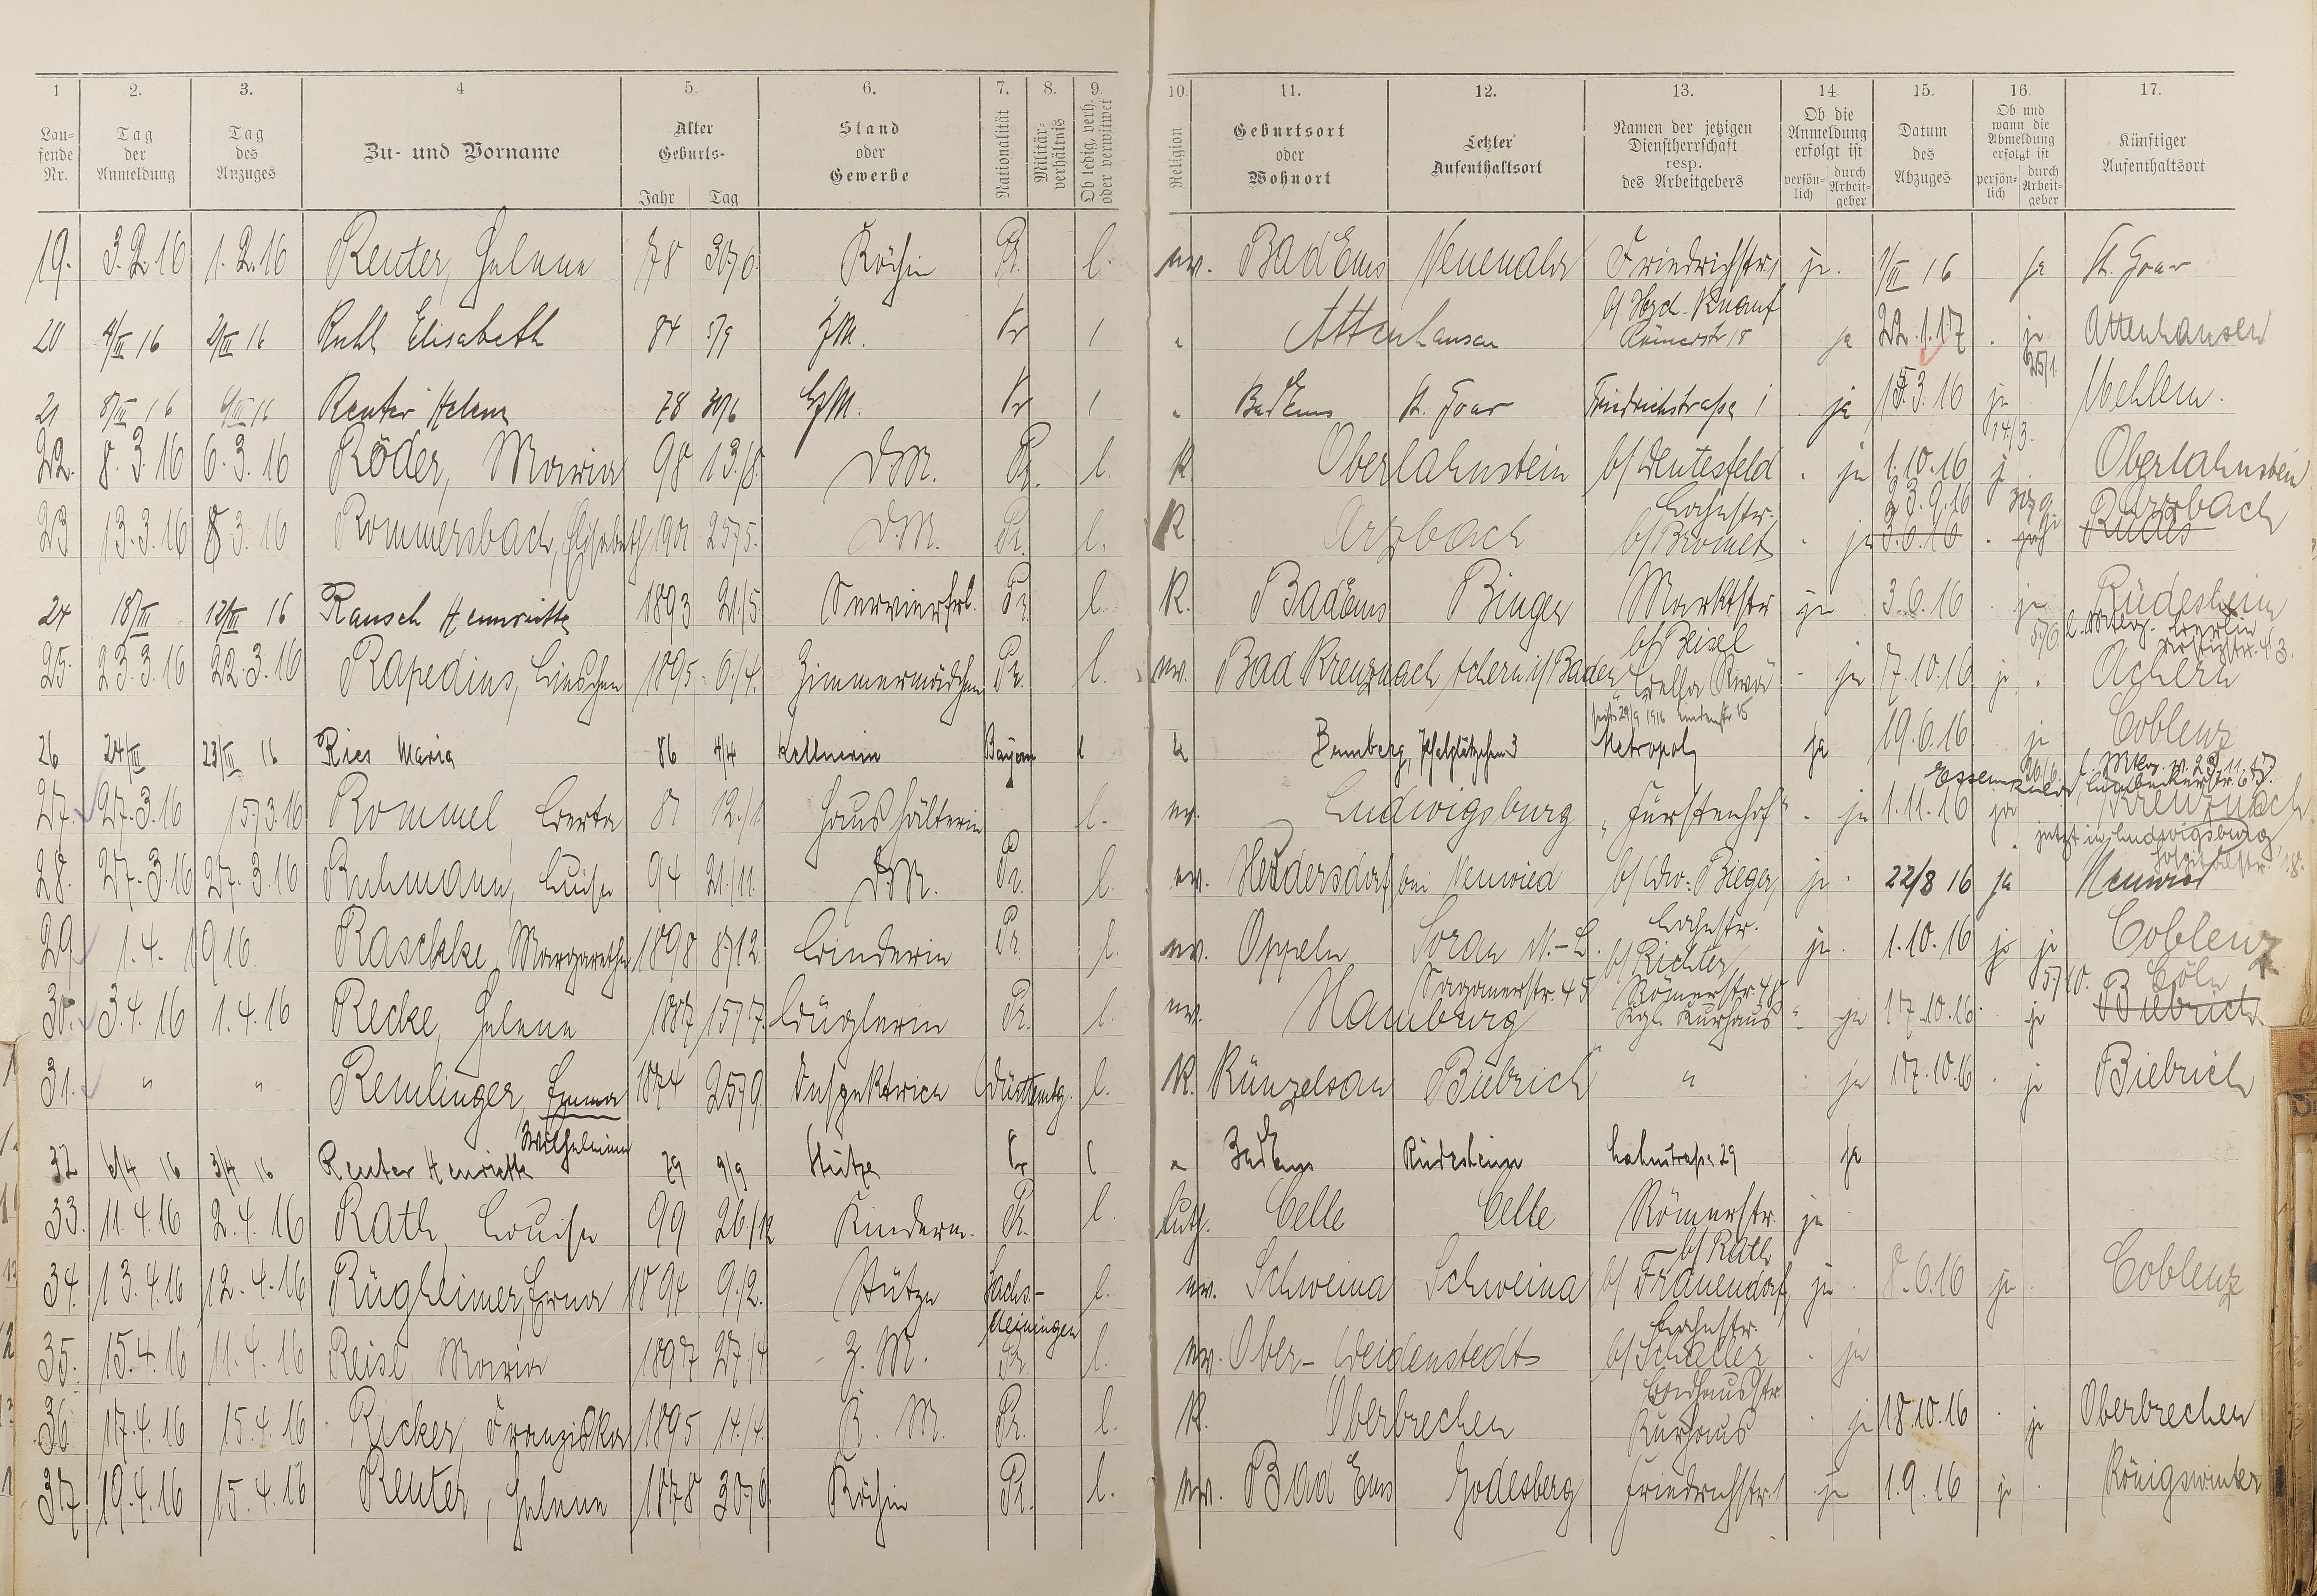 1 2. 3. 4 5. 6. 7. 8. 9. 10. 11. 12. 13. 14. 15. 16. 17.
Lau-fende Nr. Tag der Anmeldung Tag des Anzuges Zu- und Vorname Alter Geburts- Jahr Tag Stand oder Gewerbe Nationalität Militär-verhältnis Ob ledig, verh. oder verwitwet Religion Geburtsort oder Wohnort Letzter Aufenthaltsort Namen der jetzigen Dienstherrschaft resp. des Arbeitgebers Ob die Anmeldung erfolgt ist persön-lich durch Arbeit-geber Datum des Abzuges Ob und wann die Abmeldung erfolgt ist persön-lich durch Arbeit-geber Künftiger Aufenthaltsort
19. 3.2.16 1.2.16 Reuter, Helene 78 30/6. Köchin Pr. l. ev. Bad Ems Neuenahr Friedrichstr. 1 ja. 1/III 16 ja St. Goar
20 4/III 16 2/III 16 Ruhl Elisabeth 84 5/9 ZM. Pr l " Attenhausen b/ Hrd. Knauf Römerstr 18 ja 22.1.17 . ja 25/1. Attenhausen
21 8/III 16 6/III 16 Reuter Helene 78 30/6 Pr l " Bad Ems St. Goar Friedrichstraße 1 . ja 15.3.16 ja 14./3. Mehlem.
22. 8.3.16 6.3.16 Röder, Maria 98 13./8. DM. Pr. l. K. Oberlahnstein b/ Deutesfeld Lahnstr. . ja 1.10.16 ja Oberlahnstein
23 13.3.16 8.3.16 Rommersbach, Elisabeth 1901 25/5. DM. Pr. l. K. Arzbach b/ Bromet . ja 23.9.16 Arzbach
24 18/III 12/III 16 Rausch Henriette 1893 21./5. Servierfrl. Pr. l. K. Bad Ems Bingen Marktstr b/ Beisel ja 3.6.16 . ja 5/6. Rüdesheim
25. 23.3.16 22.3.16 Rapedius, Lieschen 1895 6./4. Zimmermädchen Pr. l. ev. Bad Kreuznach Achern i/ Baden ja 17.10.16 ja . Achern
26 24/III 23/III 16 Ries Maria 86 4/4 Kellnerin Bayern l Bamberg, Metropol seit 29/9 1916 Lindenstr 15 ja 19.6.16 ja Coblenz
27. 27.3.16 15/3.16 Rommel Berta 81 12./1 Haushälterin l. ev. Ludwigsburg "Fürstenhof" . ja 1.11.16 ja Kreuznach jetzt in Ludwigsburg
28. 27.3.16 27.3.16 Ruhmann, Luise 94 21./11. DM. Pr. l. ev. Heddersdorf bei Neuwied b/ Ww. Bieger, Lahnstr. ja . 22/8 16 ja Neuwied
29 1.4.1916. Raschke, Margarethe 1898 8/12. Binderin Pr. l. ev. Oppeln Sorau N.-L. Saganerstr. 45 b/ Richter Römerstr. 40 ja . 1.10.16 ja ja 5/10. Coblenz
30. 3.4.16 1.4.16 Recke, Helene 1887 15/7. Büglerin Pr. l. ev. Hamburg Kgl. Kurhaus " ja 17.10.16 . ja Cöln Biebrich
31. " " Remlinger, Emma 1874 25/9. Inspektrice Württembg. l. K. Künzelsau Biebrich " . ja 17.10.16 . ja Biebrich
32 6/4 16 3/4 16 Reuter Henriette Wilhelmine 79 9/9 Stütze Pr l " Bad Ems Rüdesheim Lahnstraße 29 ja
33. 11.4.16 2.4.16 Rath, Louise 99 26./12 Kinderm. Pr. l. luth. Celle Celle Römerstr. b/ Rath ja
34. 13.4.16 12.4.16 Rügheimer, Erna 1894 9./2. Stütze Sachs.-Meiningen l. ev. Schweina Schweina b/ Frauendorf, Lahnstr. ja . 8.6.16 ja . Coblenz
35. 15.4.16 11.4.16 Reise, Maria 1897 27./4 Z.M. Pr. l. ev. Ober-Weidenstedt b/ Schaller Badhausstr. . ja
36 17.4.16 15.4.16 Ricker, Franziska 1895 14./4. K.M. Pr. l. K. Oberbrechen Kurhaus . ja 18.10.16 . ja Oberbrechen
37. 19.4.16 15.4.16 Reuter, Helene 1878 30/6. Köchin Pr. l. ev. Bad Ems Godesberg Friedrichstr. 1 ja 1.9.16 ja . Königswinter